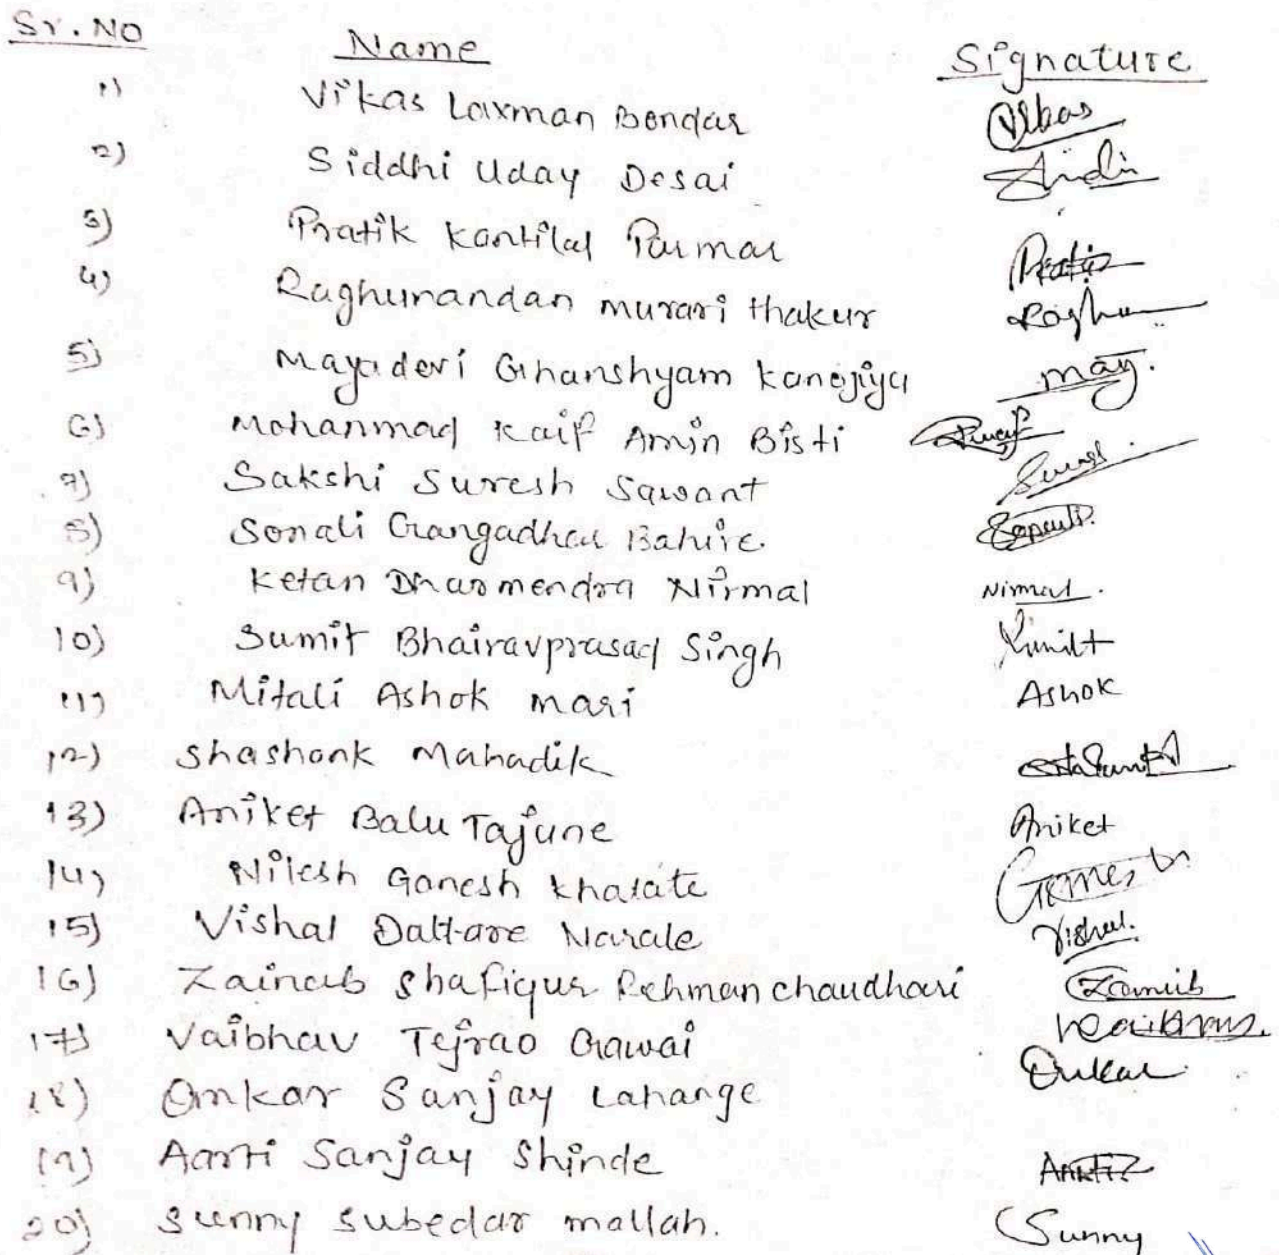 Sr.NO Name Signature
1) Vikas Laxman Bondar Vikas
2) Siddhi Uday Desai
3) Pratik Kantilal Parmar Pratik
4) Raghunandan murari thakur Raghu
5) Mayadevi Ghanshyam Kanojiya may.
6) Mohanmad Kaif Amin Bisti
7) Sakshi Suresh Sawant
8) Sonali Gangadhar Bahire.
9) Ketan Dharmendra Nirmal Nirmal.
10) Sumit Bhairavprasad Singh Sumit
11) Mitali Ashok mari Ashok
12) Shashank Mahadik
13) Aniket Balu Tajune Aniket
14) Nilesh Ganesh Kharate
15) Vishal Dattare Narale Vishal.
16) Zainab Shafiqur Rehman chaudhari Zainab
17) Vaibhav Tejrao Gawai Vaibhav
18) Omkar Sanjay Lahange Omkar
19) Aarti Sanjay Shinde Aarti
20) Sunny Subedar mallah. Sunny